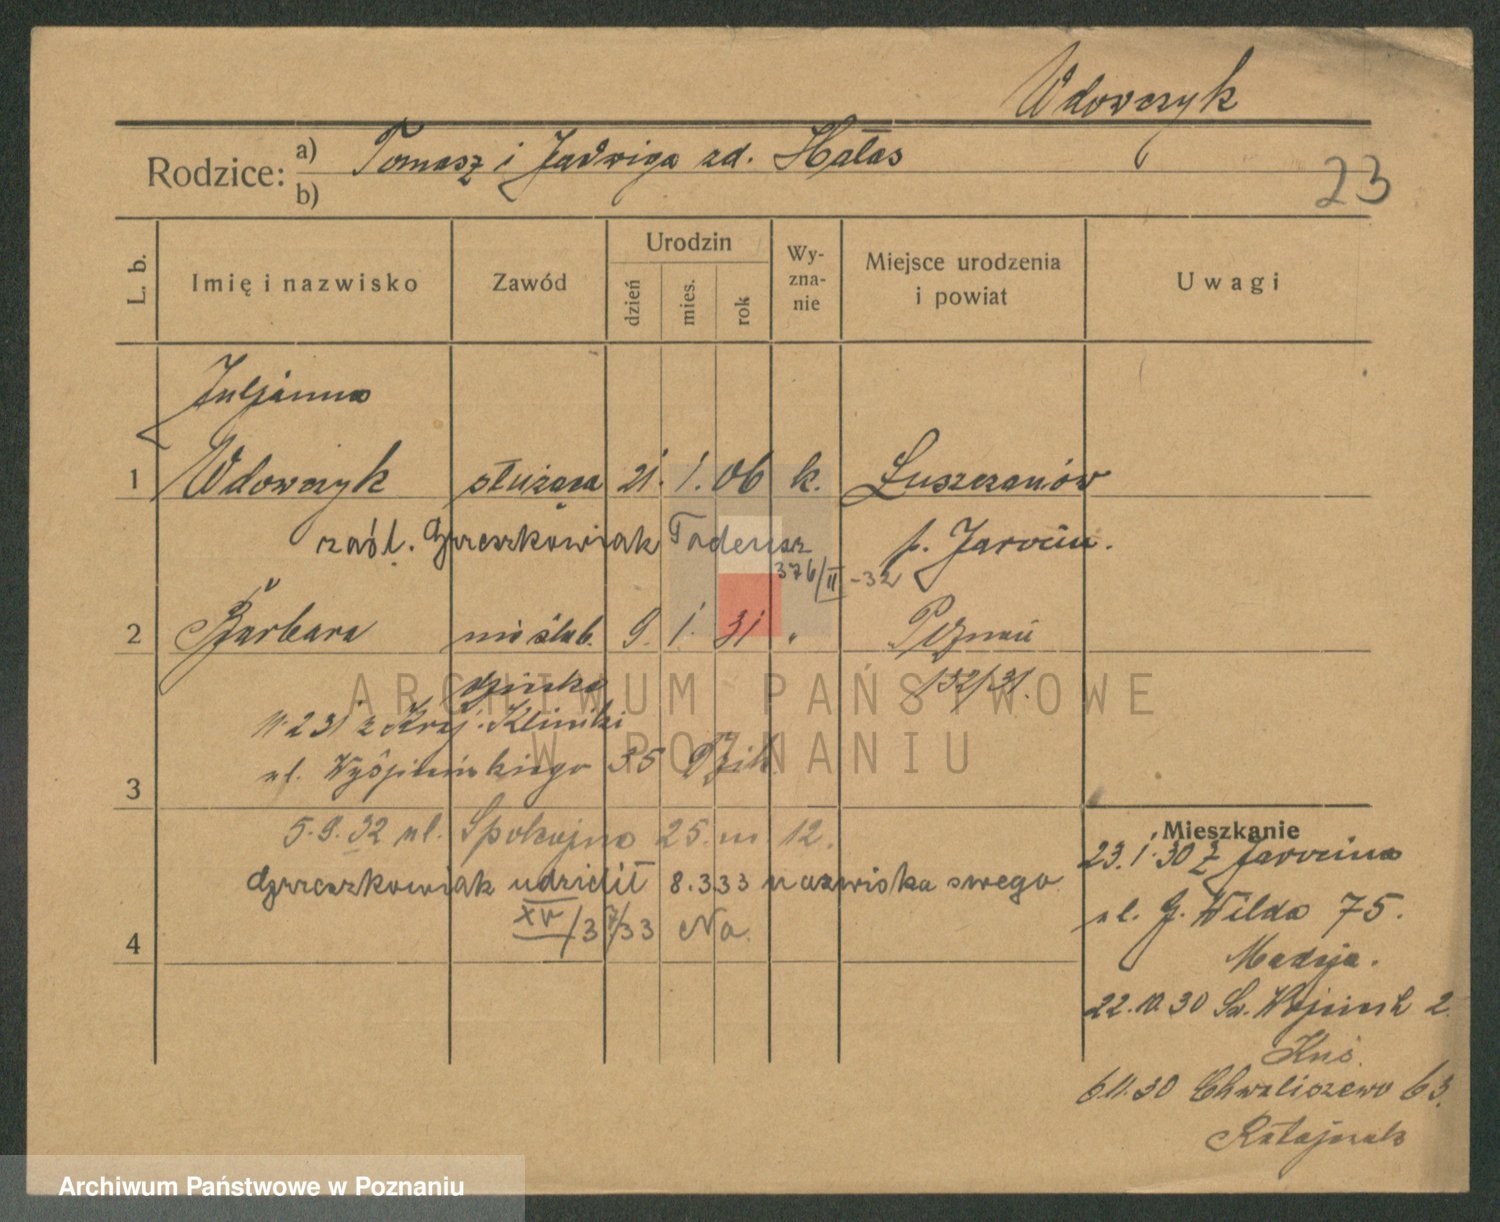 Wdowczyk
Rodzice: a) Tomasz i Jadwiga zd. Hałas
b)
23
L. b.
Imię i nazwisko
Zawód
Urodzin
dzień
mies.
rok
Wy-
zna-
nie
Miejsce urodzenia
i powiat
Uwagi
Juljanna
1 Wdowczyk służąca 21. 1. 06 k. Łuszczanów
zaśl. Gorzelkowiak Tadeusz p. Jarocin.
376/II -32
2 Barbara nieślub. 9. 1. 31 " Poznań
dziecko 132/31.
11 2 31 z Kraj. Kliniki
ul. Wyśpiańskiego 35
3
5.9.32 ul. Spokojna 25. m. 12.
udzielił 8.3.33 nazwiska swego
XV/37/33 Na
4
Mieszkanie
23.1.30 z Jarocina
ul. G. Wilda 75.
Madaja.
22.10.30 Św. Wojciech 2.
6.11.30 Chwaliszewo 63.
Ratajczak
ARCHIWUM PAŃSTWOWE
W POZNANIU
Archiwum Państwowe w Poznaniu